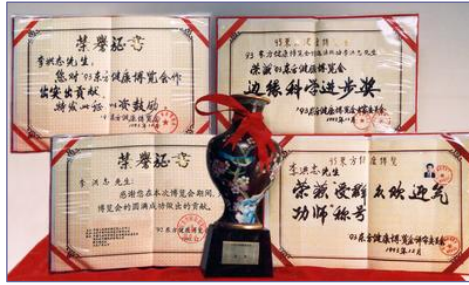 荣誉证书
李洪志先生：
您对'93东方健康博览会作
出突出贡献，
特发此证 以资鼓励
'93东方健康博览会
1993年12月
李洪志先生
荣获'93东方健康博览会
边缘科学进步奖
'93东方健康博览会评审委员会
1993年12月
荣誉证书
李洪志先生：
感谢您在本次博览会期间，
博览会的圆满成功做出的贡献。
'93东方健康博览
李洪志先生
荣获受群众欢迎气
功师称号
'93东方健康博览会评审委员会
1993年12月